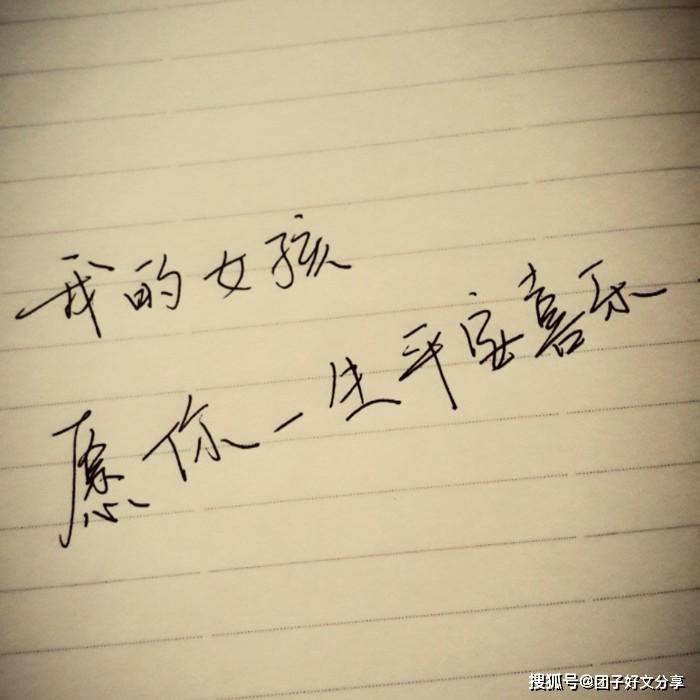 我的女孩
愿你一生平安喜乐
搜狐号@团子好文分享